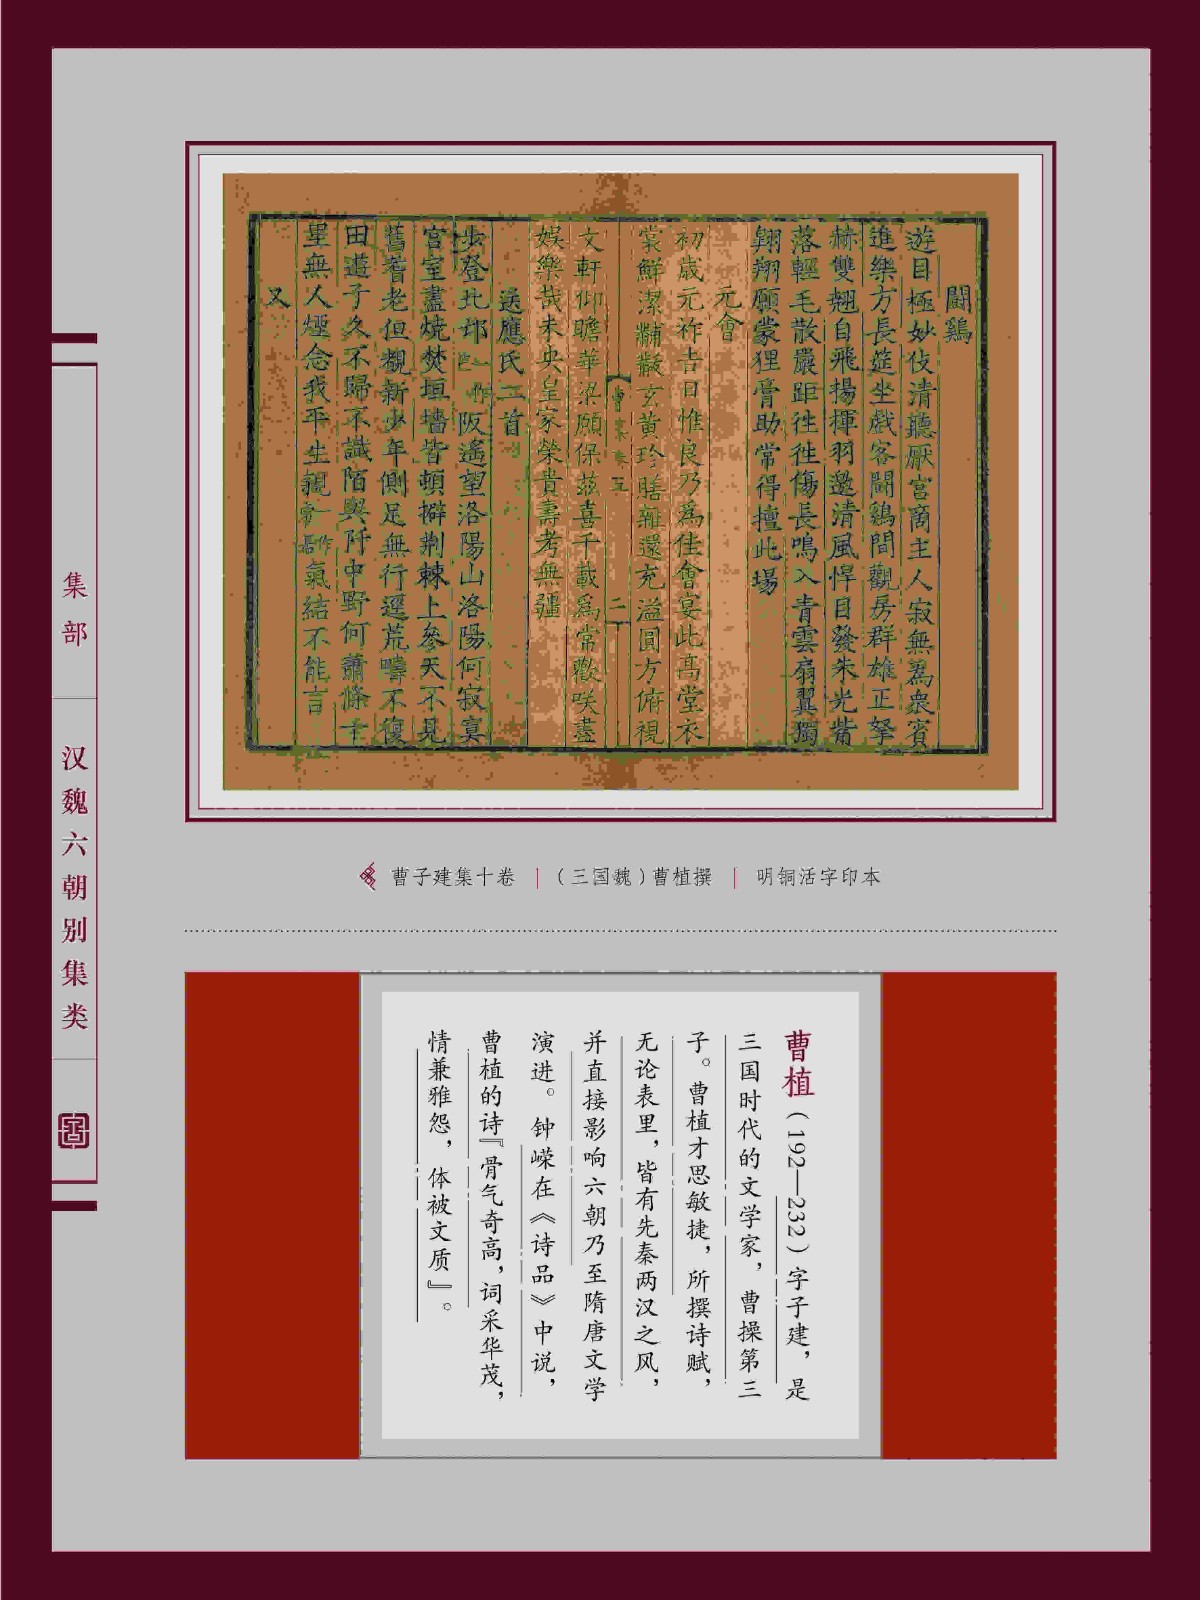 鬭鷄
遊目極妙伎清聽厭宮商主人寂無為衆賓
進樂方長筵坐戲客鬭鷄間觀房群雄正拏
赫雙翹自飛揚揮羽邀清風悍目發朱光觜
落輕毛散嚴距往往傷長鳴入青雲扇翼獨
翱翔願蒙狸膏助常得擅此場
元會
初歲元祚吉日惟良乃為佳會宴此高堂衣
裳鮮潔黼黻玄黃珍膳雜還充溢圓方俯視
曹集卷五 二
文軒仰瞻華梁願保茲喜千載為常歡咲盡
娛樂哉未央皇家榮貴壽考無疆
送應氏二首
步登北邙阪遙望洛陽山洛陽何寂寞
宮室盡燒焚垣墻皆頓擗荆棘上參天不見
舊耆老但覩新少年側足無行逕荒疇不復
田遊子久不歸不識陌與阡中野何蕭條千
里無人煙念我平生親氣結不能言
又
曹子建集十卷 |（三国魏）曹植撰 | 明铜活字印本
集部
汉魏六朝别集类
曹植（192—232）字子建，是
三国时代的文学家，曹操第三
子。曹植才思敏捷，所撰诗赋，
无论表里，皆有先秦两汉之风，
并直接影响六朝乃至隋唐文学
演进。钟嵘在《诗品》中说，
曹植的诗『骨气奇高，词采华茂，
情兼雅怨，体被文质』。